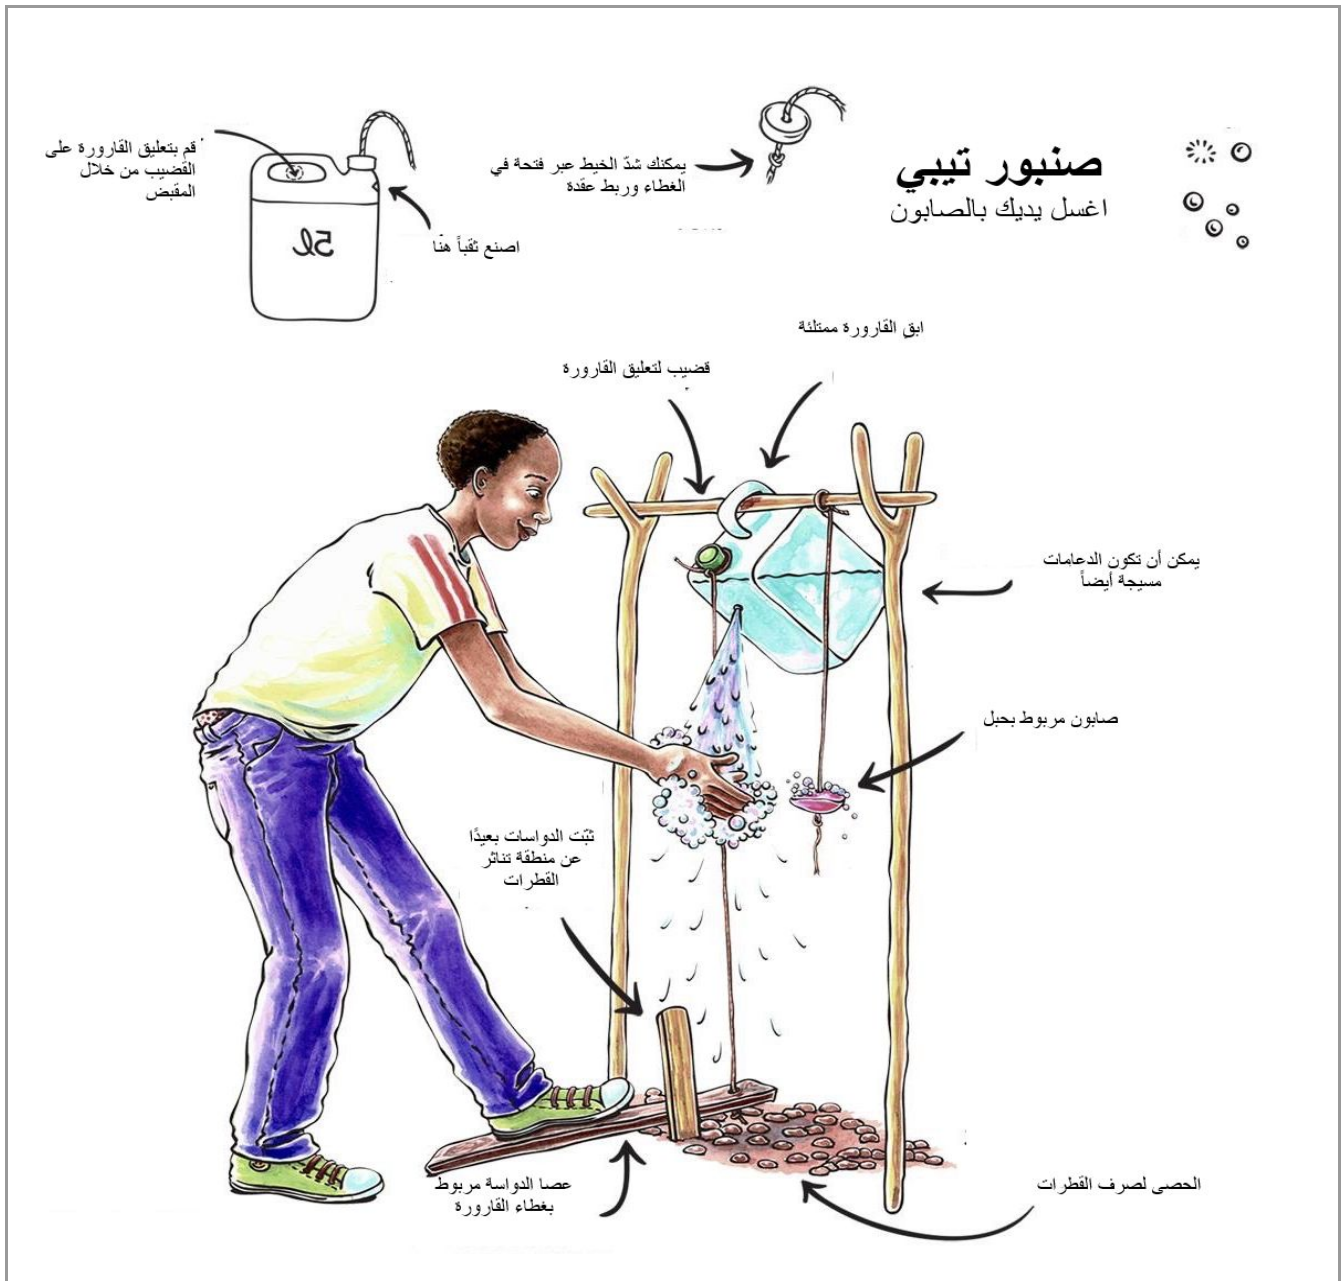 صنبور تيبي
اغسل يديك بالصابون
يمكنك شدّ الخيط عبر فتحة في
الغطاء وربط عقدة
قم بتعليق القارورة على
القضيب من خلال
المقبض
5ℓ
اصنع ثقباً هنا
ابقِ القارورة ممتلئة
قضيب لتعليق القارورة
يمكن أن تكون الدعامات
مسيجة أيضاً
صابون مربوط بحبل
ثبّت الدواسات بعيدًا
عن منطقة تناثر
القطرات
عصا الدواسة مربوط
بغطاء القارورة
الحصى لصرف القطرات